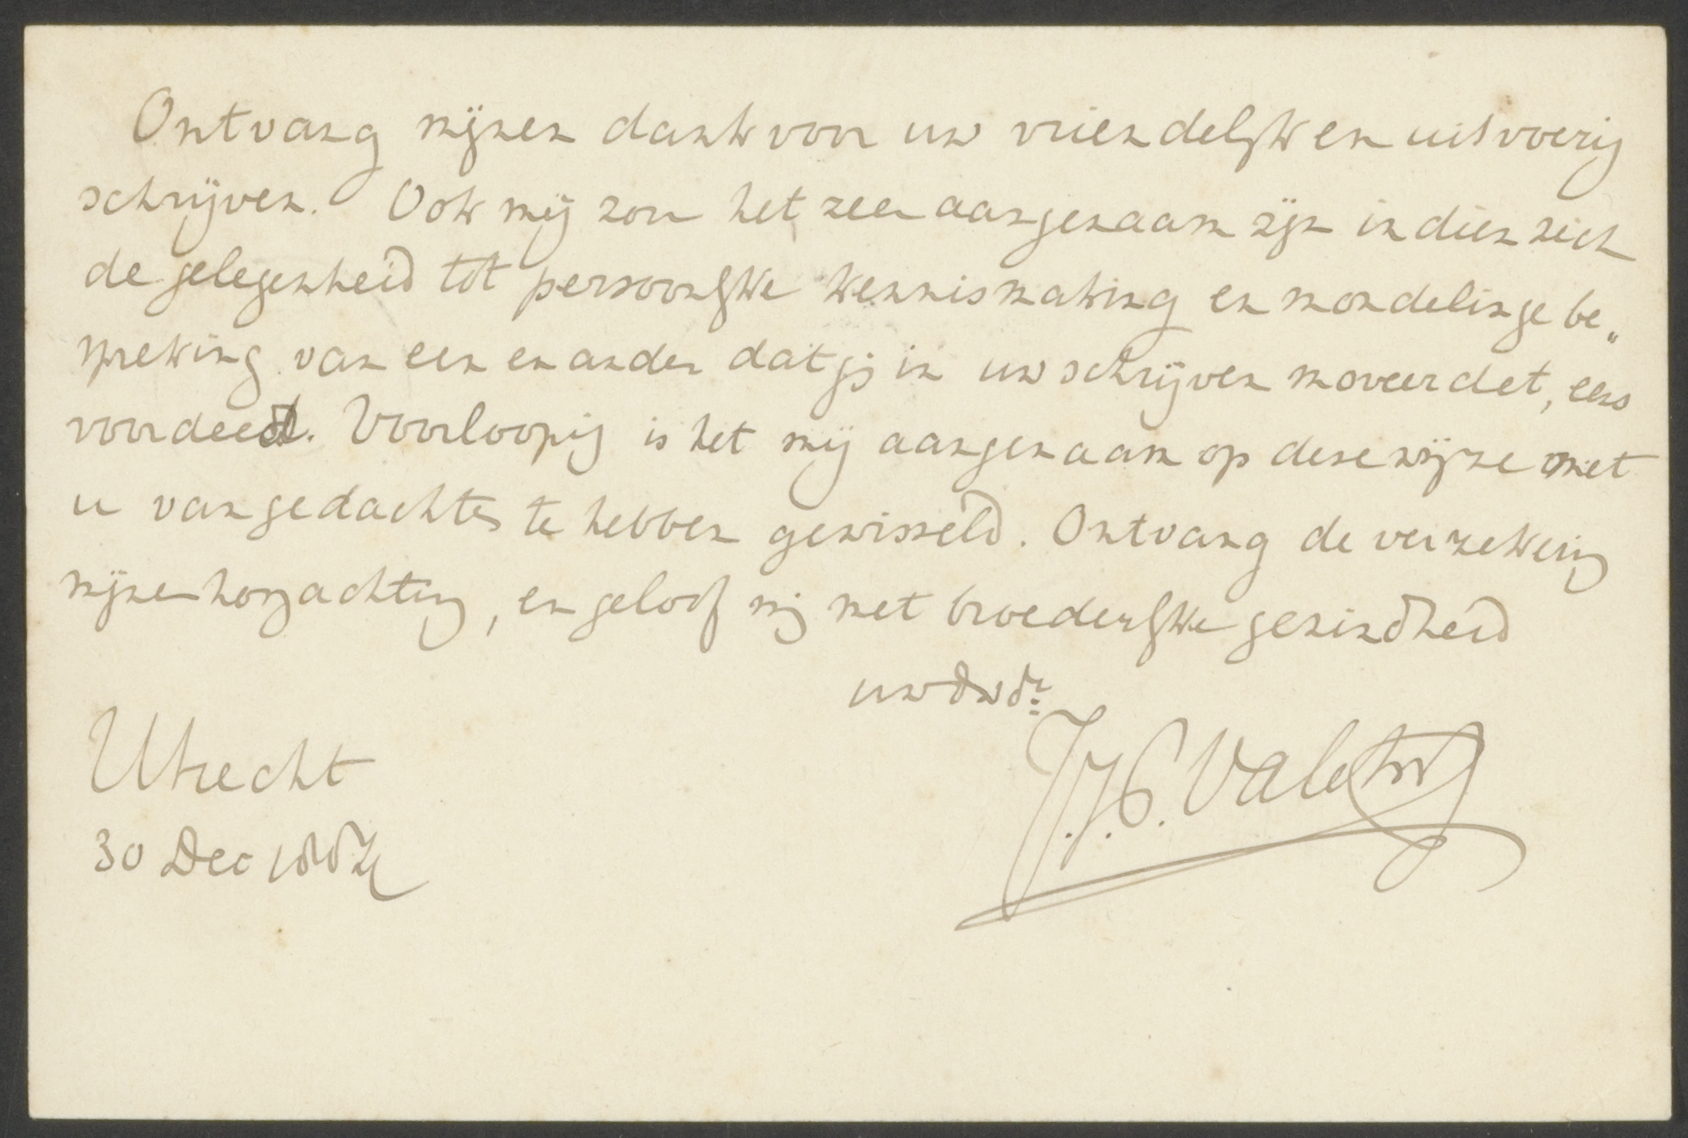 Ontvang mijnen dank voor uw vriendelijk en uitvoerig
schrijven. Ook mij zou het zeer aangenaam zijn indien zich
de gelegenheid tot persoonlijke kennismaking en mondelinge be„
spreking van een en ander dat gij in uw schrijven moveerdet, eens
voordeed. Voorloopig is het mij aangenaam op deze wijze met
u van gedachten te hebben gewisseld. Ontvang de verzekering
mijner hoogachting, en geloof mij met broederlijke gezindheid
uw dwdr
J.J.P. Valeton
Utrecht
30 Dec